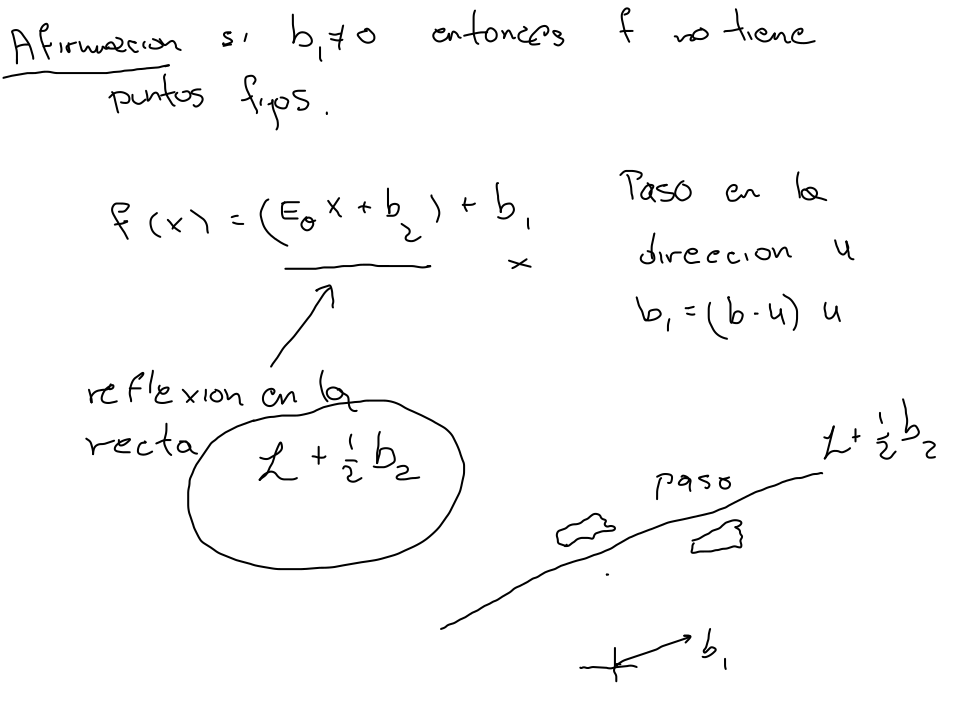 Afirmacion si b₁≠0 entonces f no tiene
puntos fijos.
f(x) = (E₀ x + b₂) + b₁
x
Paso en la
direccion u
b₁ = (b·u) u
reflexion en la
recta L + ½ b₂
L + ½ b₂
paso
b₁